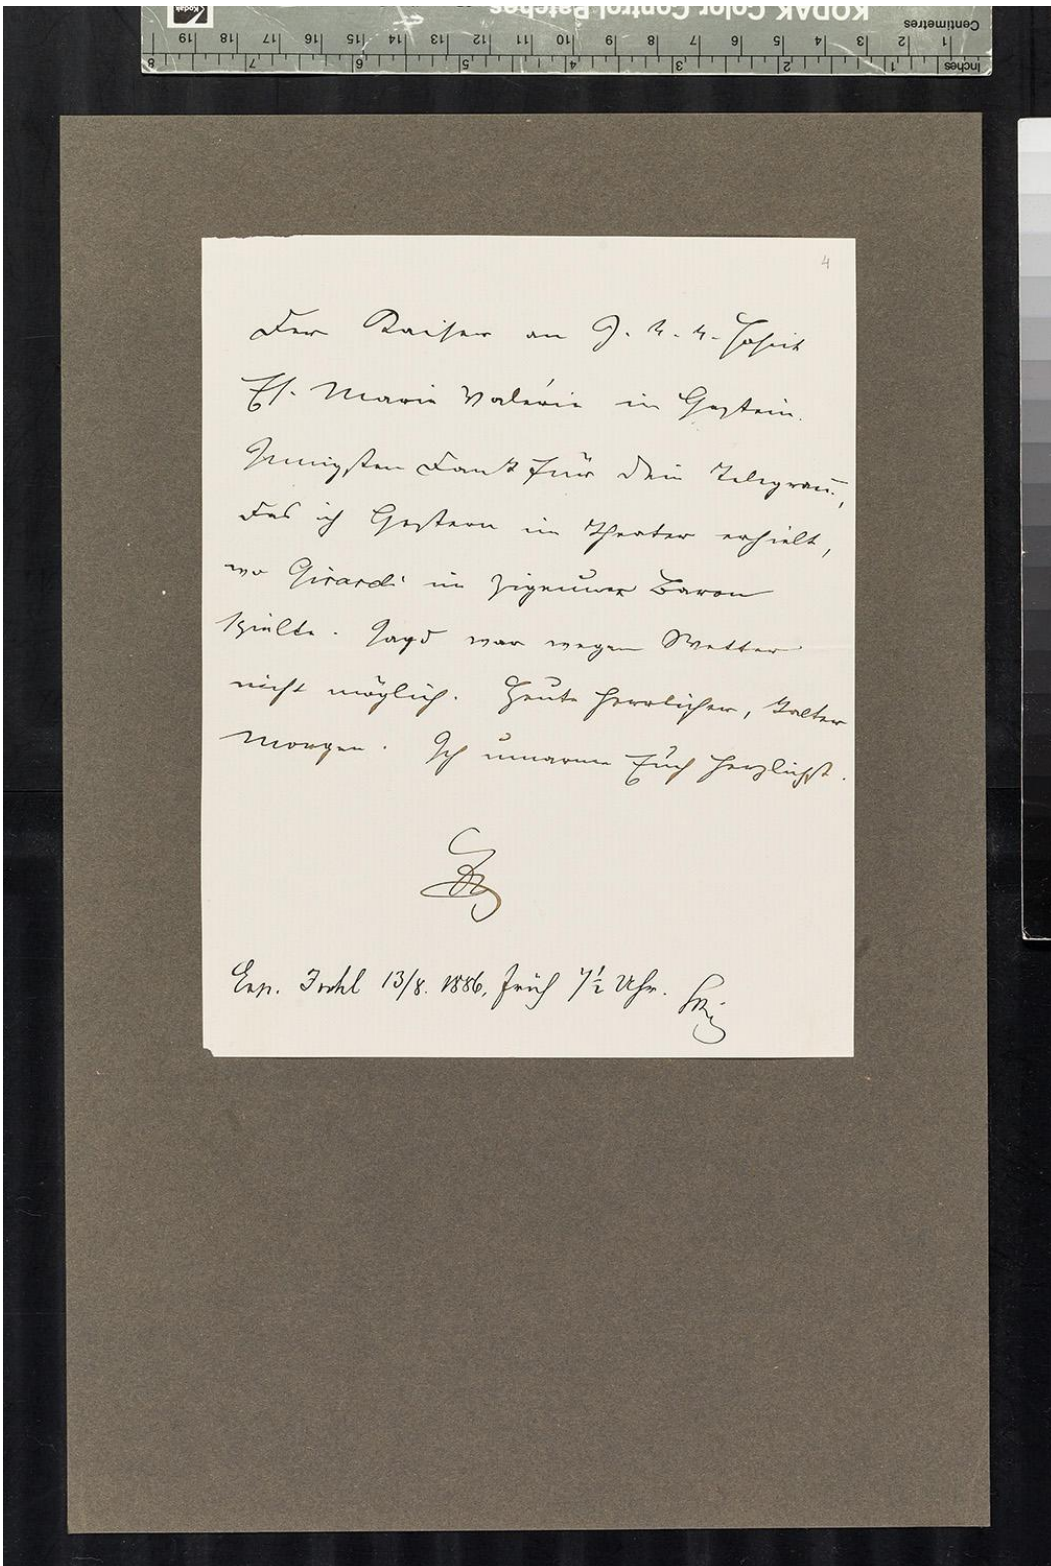 KODAK Color Control Patches
Kodak
Centimetres
1 2 3 4 5 6 7 8 9 10 11 12 13 14 15 16 17 18 19
Inches 1 2 3 4 5 6 7 8
4
Der Kaiser an I. k. k. Hoheit
Eh. Marie Valérie in Gastein.
Innigsten Dank für Dein Telegram̅,
das ich Gestern im Theater erhielt,
wo Girardi im Zigeuner Baron
spielte. Jagd war wegen Wetter
nicht möglich. Heute herrlicher, kalter
Morgen. Ich umarme Euch herzlichst.
Exp. Ischl 13/8. 1886, früh 7½ Uhr.